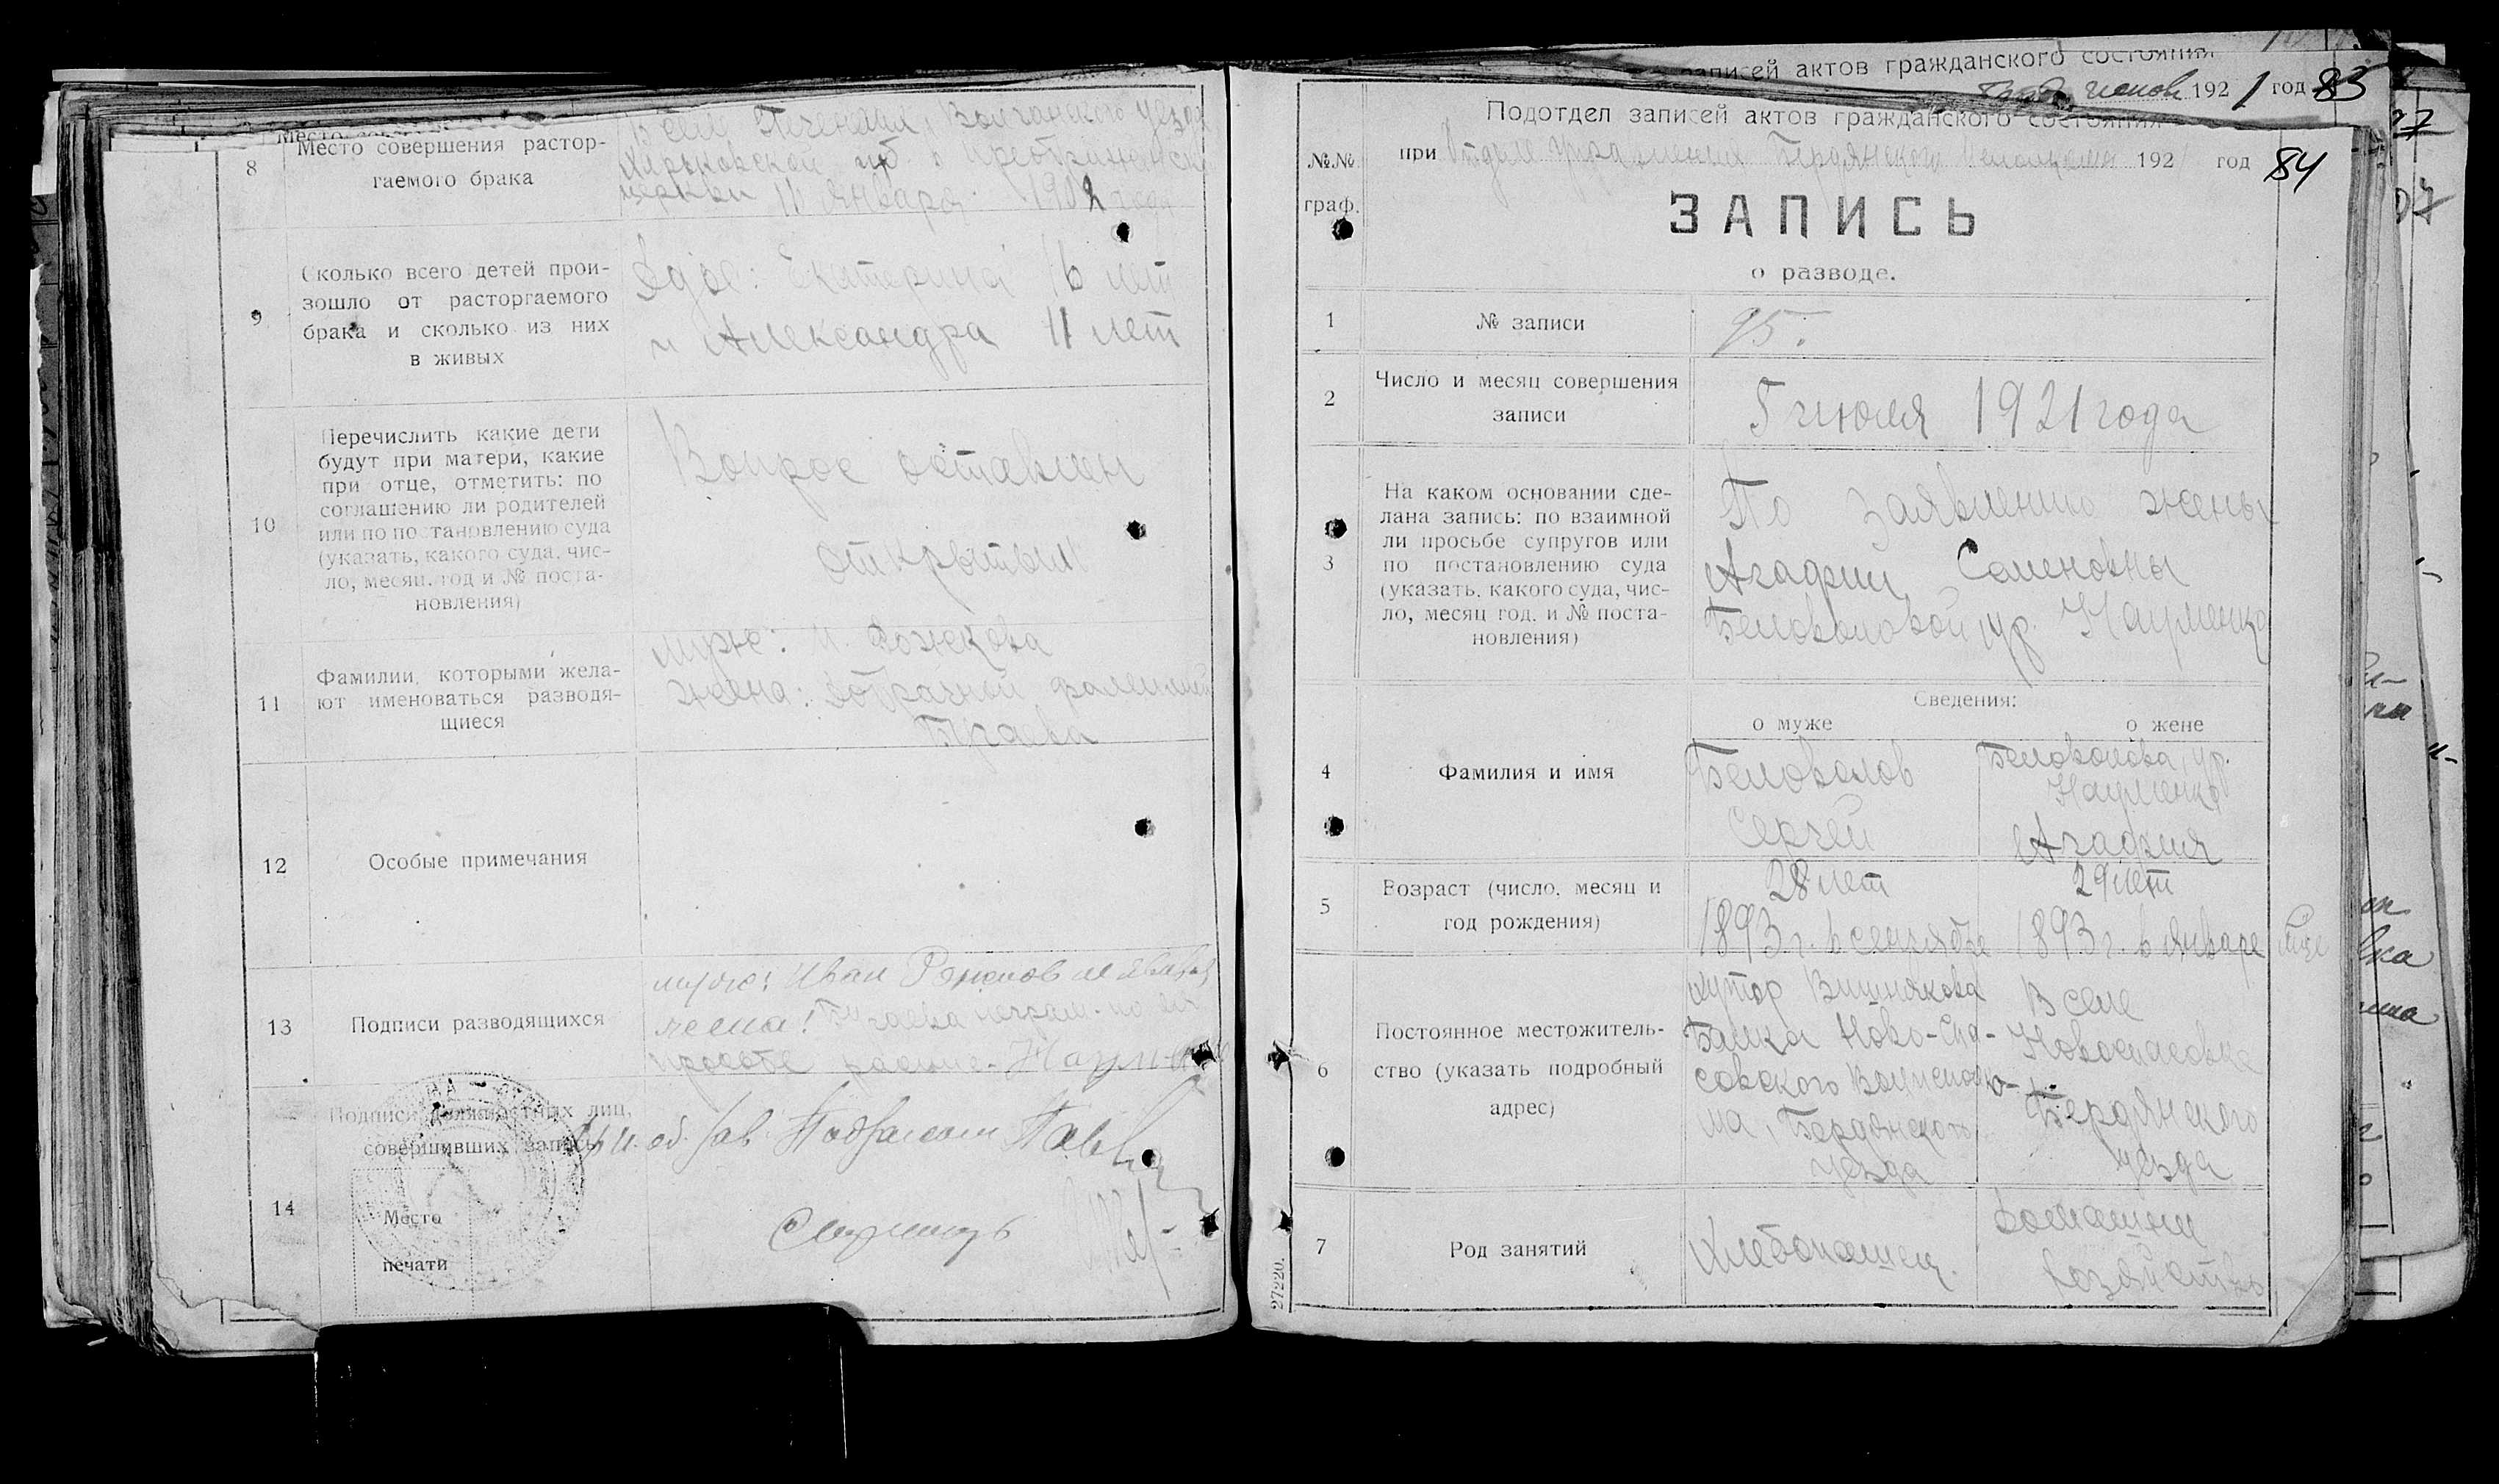 8
Место совершения растор-
гаемого брака
В селе Печенеги, Волчанского уезда
Харьковской губ. Преображенск.
церкви 11 января 1902 года
9
Сколько всего детей прои-
зошло от расторгаемого
брака и сколько из них
в живых
Двое: Екатерина 16 лет
и Александра 11 лет
10
Перечислить какие дети
будут при матери, какие
при отце, отметить: по
соглашению ли родителей
или по постановлению суда
(указать, какого суда, чис-
ло, месяц, год и № поста-
новления)
Вопрос оставлен
открытым
11
Фамилии, которыми жела-
ют именоваться разводя-
щиеся
жена: добрачной фамилией
12
Особые примечания
13
Подписи разводящихся
муж: Иван
жена:
просьбе
14
Подписи должностных лиц,
совершивших запись
Место
печати
записей актов гражданского состояния
192 1 год 83
Подотдел записей актов гражданского состояния
при Отделе Управления Бердянского Исполкома 192 год 84
№№
граф.
ЗАПИСЬ
о разводе.
1
№ записи
95.
2
Число и месяц совершения
записи
5 июля 1921 года
3
На каком основании сде-
лана запись: по взаимной
ли просьбе супругов или
по постановлению суда
(указать, какого суда, чис-
ло, месяц год, и № поста-
новления)
По заявлению жены
Агафии Семеновны
Беловоловой ур. Науменко
Сведения:
о муже
о жене
4
Фамилия и имя
Беловолов
Сергей
Беловолова, ур.
Науменко
Агафия
5
Возраст (число, месяц и
год рождения)
28 лет
1893 г. в сентябре
29 лет
1893 г. в январе
6
Постоянное местожитель-
ство (указать подробный
адрес)
хутор Вишнякова
Балка Ново-Спа-
совского Волисполко-
ма Бердянского
уезда
В селе
Новоспасовке
Бердянского
уезда
7
Род занятий
Хлебопашец.
Домашнее
хозяйство
27220.